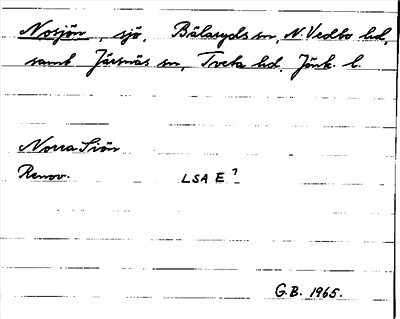 Nosjön, sjö. Bälaryds sn, N. Vedbo hd,
samt Järsnäs sn, Tveta hd, Jönk. l.
Norra Siön
Renov. LSA E 7
G.B. 1965.